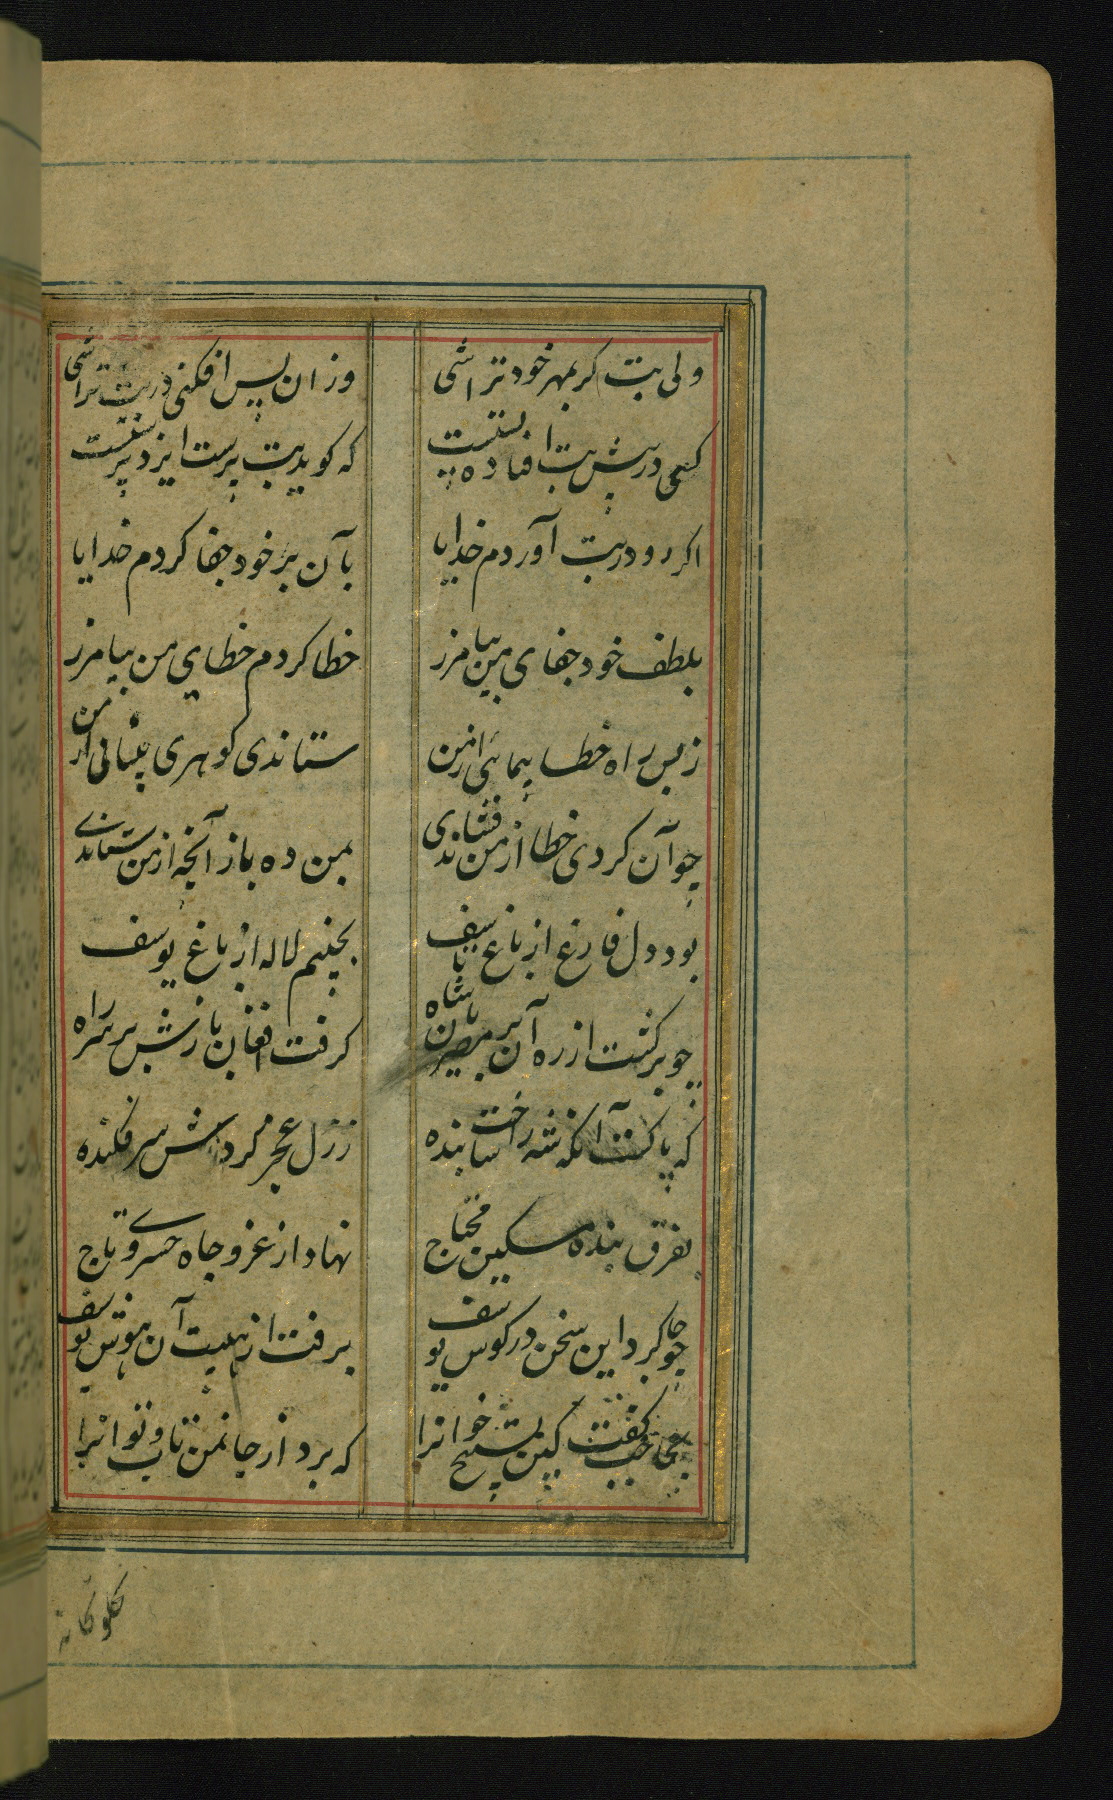 ولی بت کر بمهر خود تراشی
وزان پس افکنی در بت تراشی
کسی در پیش بت افتاده پستست
که کوید بت پرست ایزد پرستست
اکر رو در بت آوردم خدایا
بآن بر خود جفا کردم خدایا
بلطف خود جفای من بیامرز
خطا کردم خطای من بیامرز
ز بس راه خطا پیمائی از من
ستاندی کوهری بینائی از من
چو آن کرد خطا از من فشاندی
بمن ده باز آنچه از من ستاندی
بود دل فارغ از باغ تاسف
بچینم لاله از باغ یوسف
چو برکشت از ره آن بر مصریان شاه
کرفت افغان بازش بر سر راه
که پاکست آنکه شه را ساخت بنده
ز ذل عجز کردش سر فکنده
بفرق بنده مسکین محتاج
نهاد از عز و جاه خسروی تاج
چو جا کرد این سخن در کوش یوسف
برفت از هیبت آن هوش یوسف
بحاجب کفت کین تسبیح خوانرا
که برد از جان من تاب و توانرا